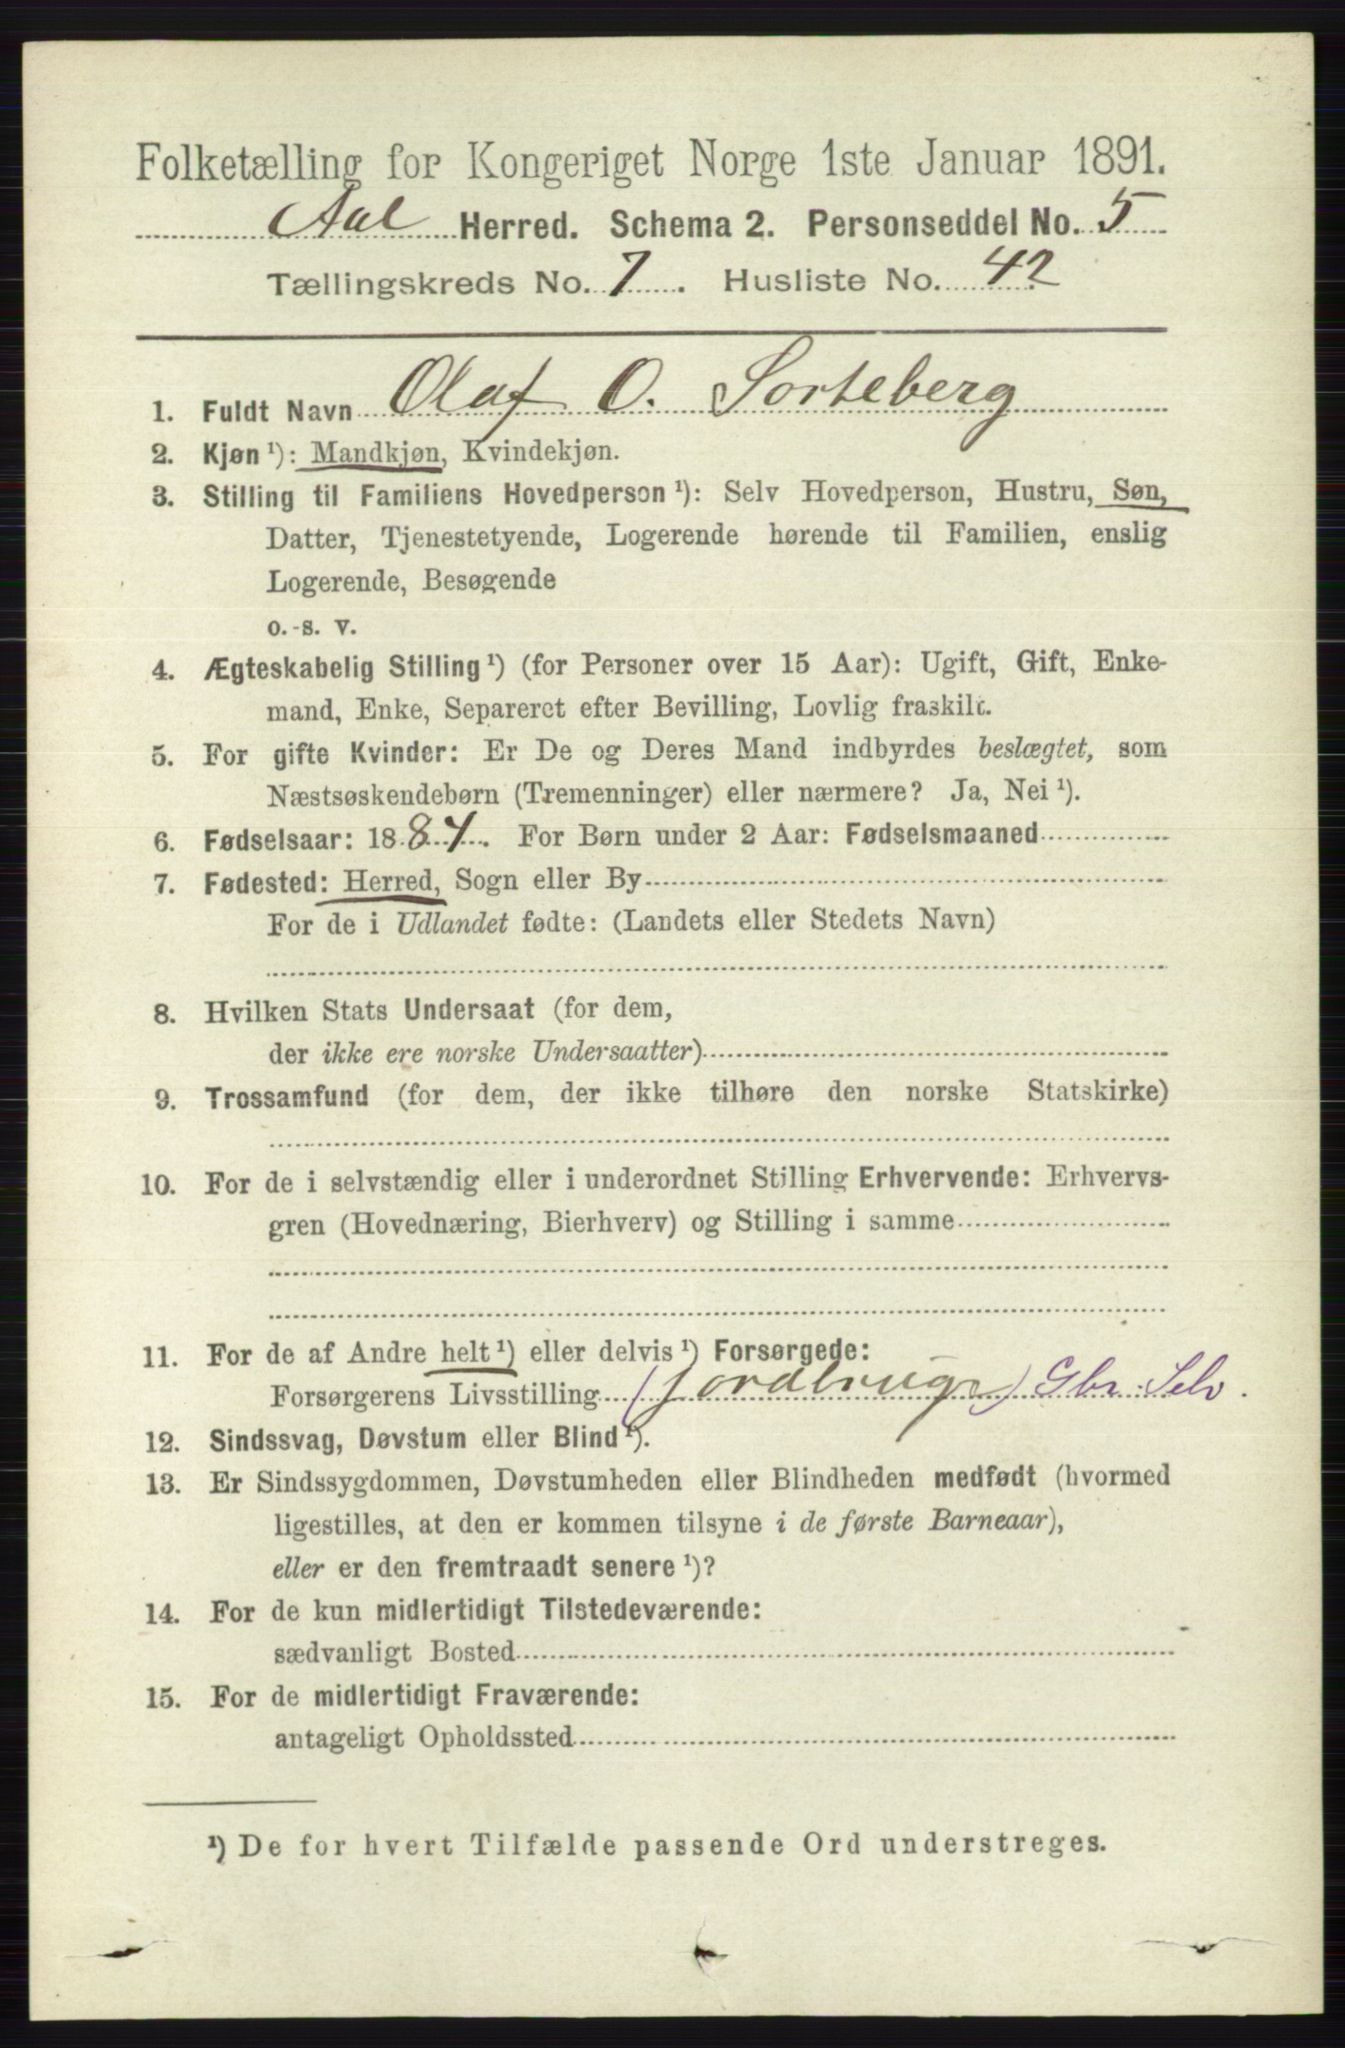 Folketælling for Kongeriget Norge 1ste Januar 1891.
Aal Herred. Schema 2. Personseddel No. 5
Tællingskreds No. 7. Husliste No. 42
1. Fuldt Navn Olaf O. Sorteberg
2. Kjøn ¹): Mandkjøn, Kvindekjøn.
3. Stilling til Familiens Hovedperson ¹): Selv Hovedperson, Hustru, Søn,
Datter, Tjenestetyende, Logerende hørende til Familien, enslig
Logerende, Besøgende
o. s. v.
4. Ægteskabelig Stilling ¹) (for Personer over 15 Aar): Ugift, Gift, Enke-
mand, Enke, Separeret efter Bevilling, Lovlig fraskilt.
5. For gifte Kvinder: Er De og Deres Mand indbyrdes beslægtet, som
Næstsøskendebørn (Tremenninger) eller nærmere? Ja, Nei ¹).
6. Fødselsaar: 1884. For Børn under 2 Aar: Fødselsmaaned
7. Fødested: Herred, Sogn eller By
For de i Udlandet fødte: (Landets eller Stedets Navn)
8. Hvilken Stats Undersaat (for dem,
der ikke ere norske Undersaatter)
9. Trossamfund (for dem, der ikke tilhøre den norske Statskirke)
10. For de i selvstændig eller i underordnet Stilling Erhvervende: Erhvervs-
gren (Hovednæring, Bierhverv) og Stilling i samme
11. For de af Andre helt ¹) eller delvis ¹) Forsørgede:
Forsørgerens Livsstilling (Jordbruger) Gbr. Selv.
12. Sindssvag, Døvstum eller Blind ¹).
13. Er Sindssygdommen, Døvstumheden eller Blindheden medfødt (hvormed
ligestilles, at den er kommen tilsyne i de første Barneaar),
eller er den fremtraadt senere ¹)?
14. For de kun midlertidigt Tilstedeværende:
sædvanligt Bosted
15. For de midlertidigt Fraværende:
antageligt Opholdssted
¹) De for hvert Tilfælde passende Ord understreges.